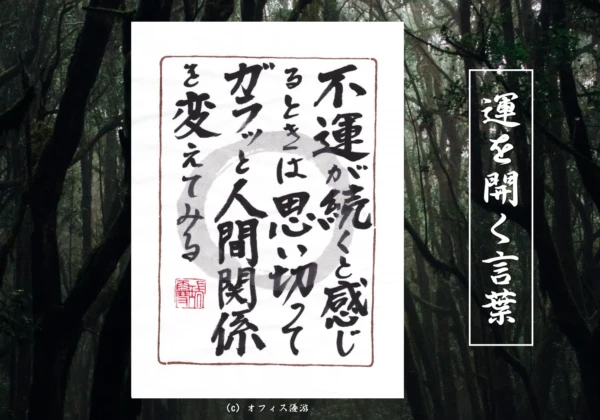 運を開く言葉
不運が続くと感じ
るときは思い切って
ガラッと人間関係
を変えてみる
(C) オフィス優游